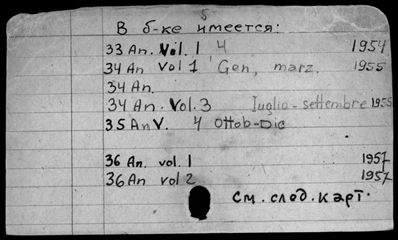 5
В б-ке имеется:
33 An. Vol. 1 4 1954
34 An Vol 1 Gen, marz. 1955
34 An.
34 An. Vol. 3 Iuglio-settembre 1955
35 An V. 4 Ottob-Dic
36 An. vol. 1 1957
36 An vol 2 1957
См. след. карт.